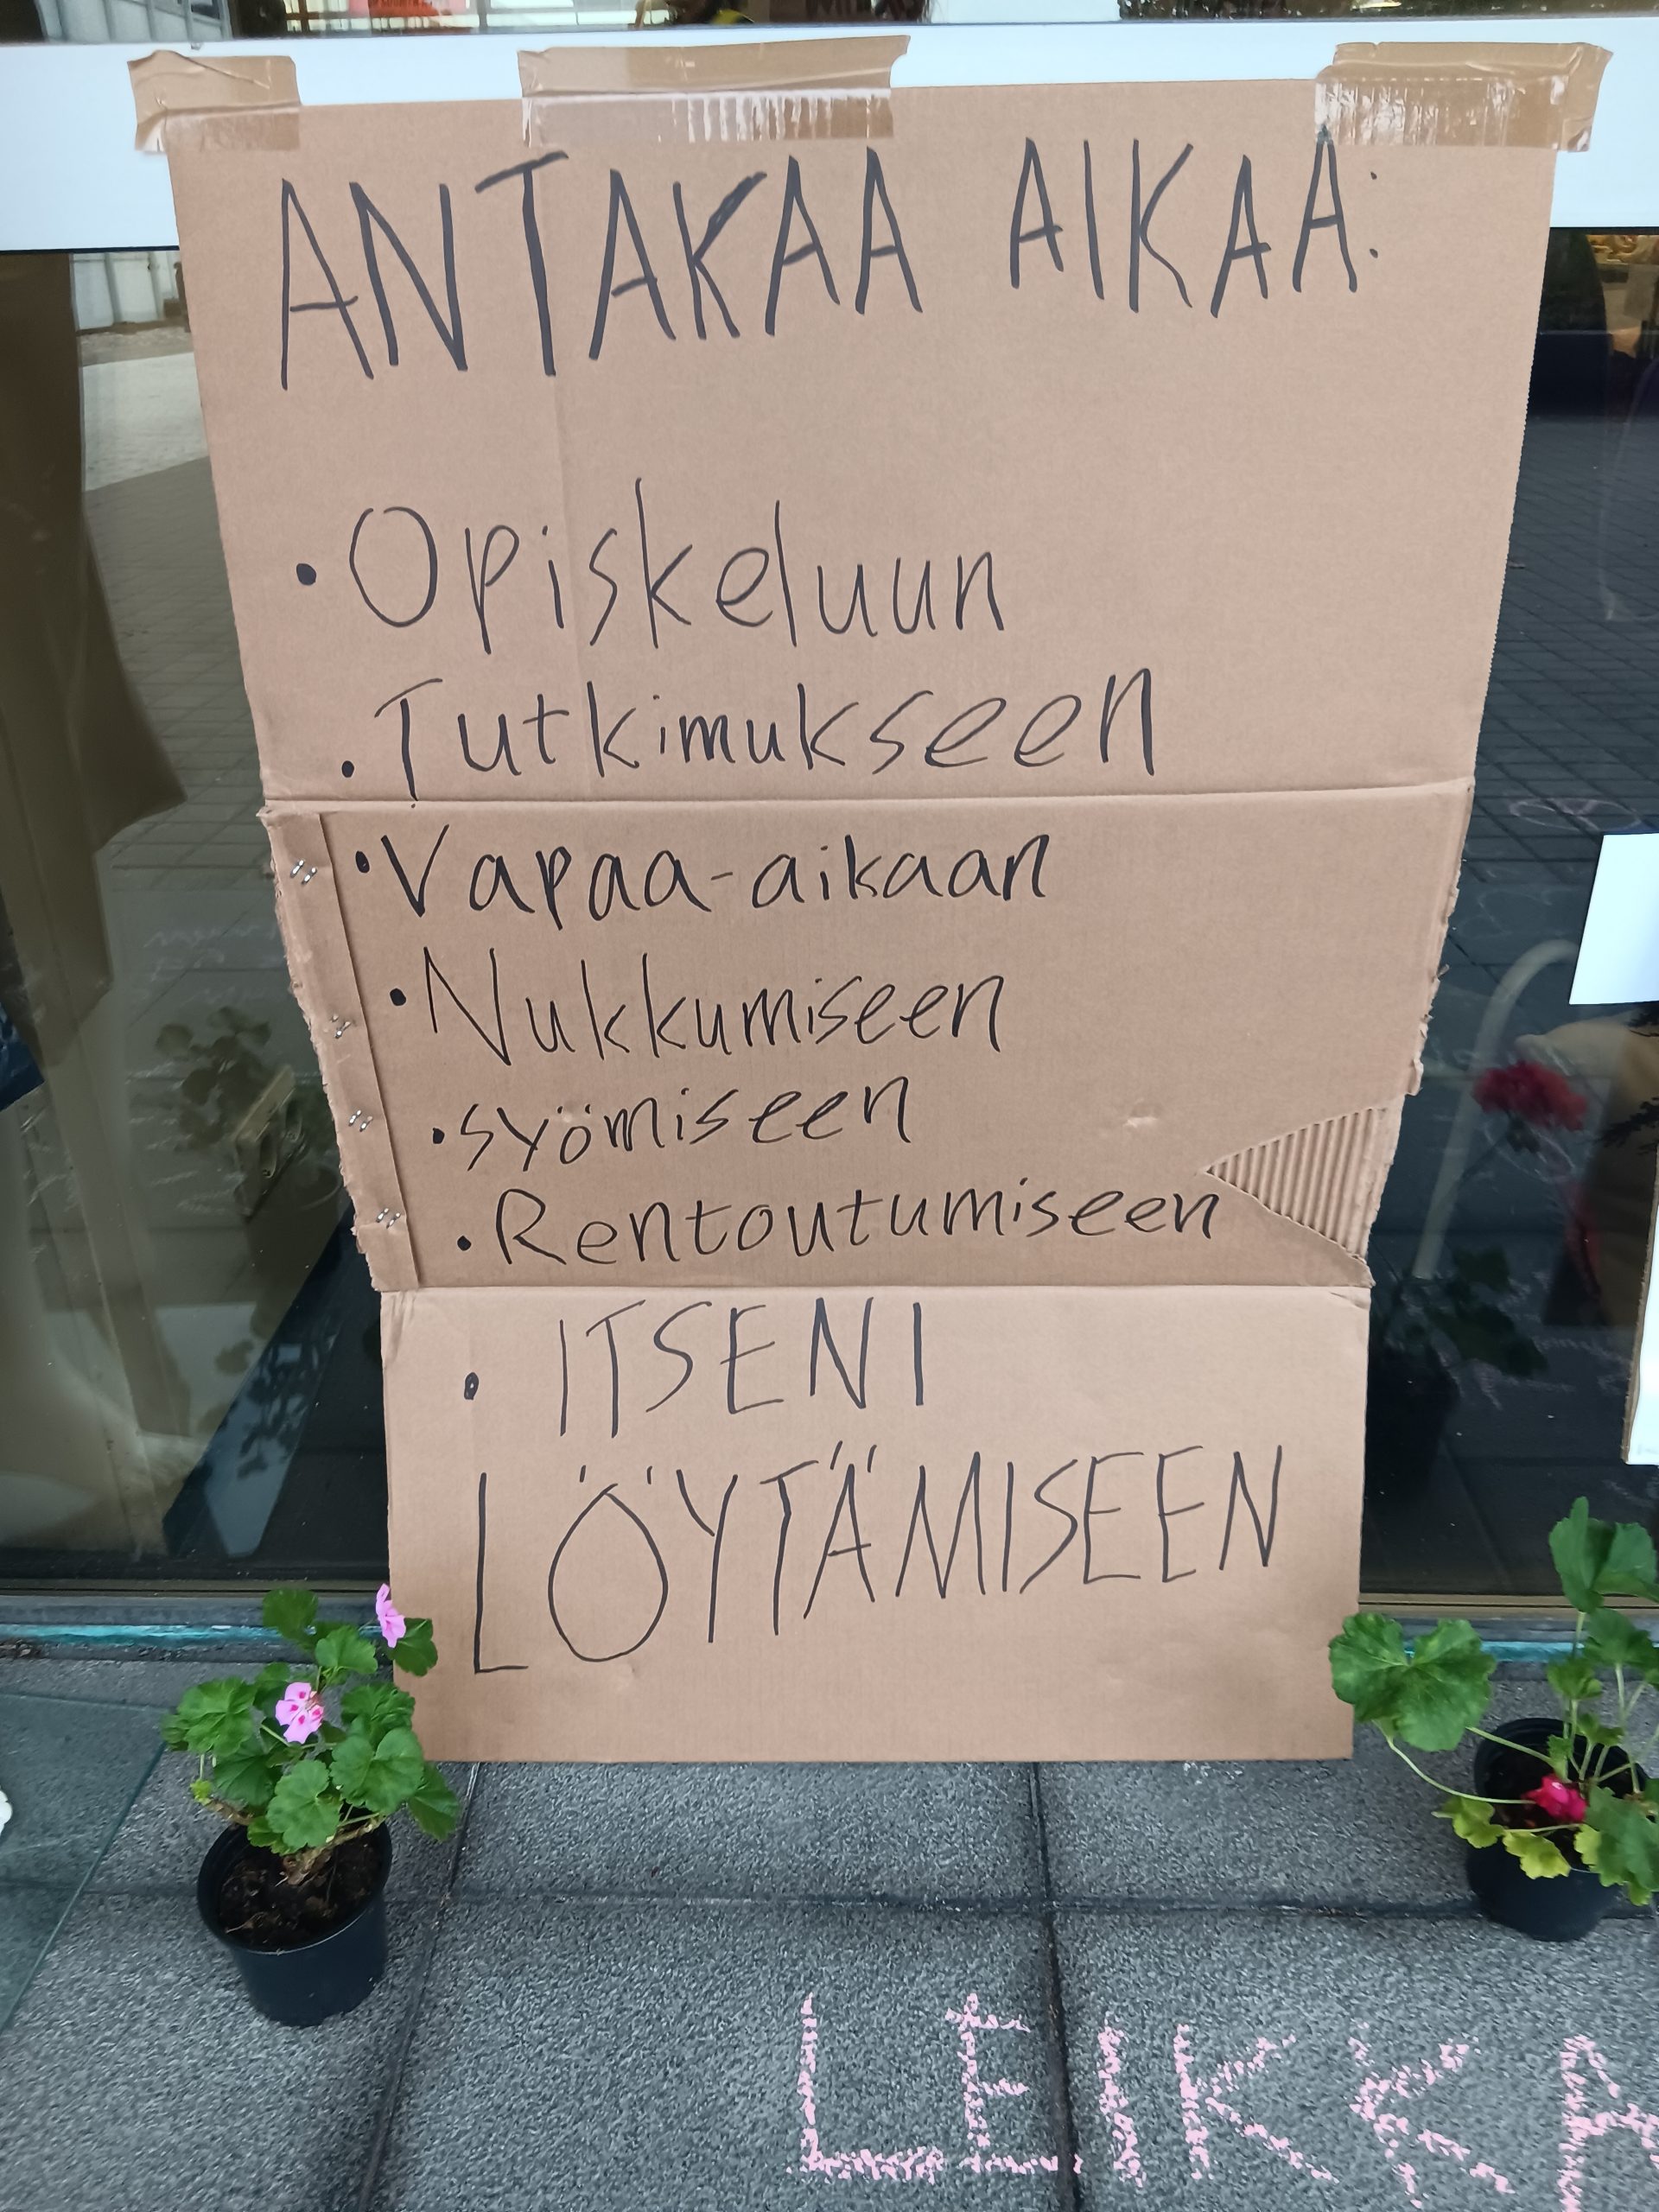 ANTAKAA AIKAA:
• Opiskeluun
• Tutkimukseen
• Vapaa-aikaan
• Nukkumiseen
• syömiseen
• Rentoutumiseen
• ITSENI
LÖYTÄMISEEN
LEIKKA